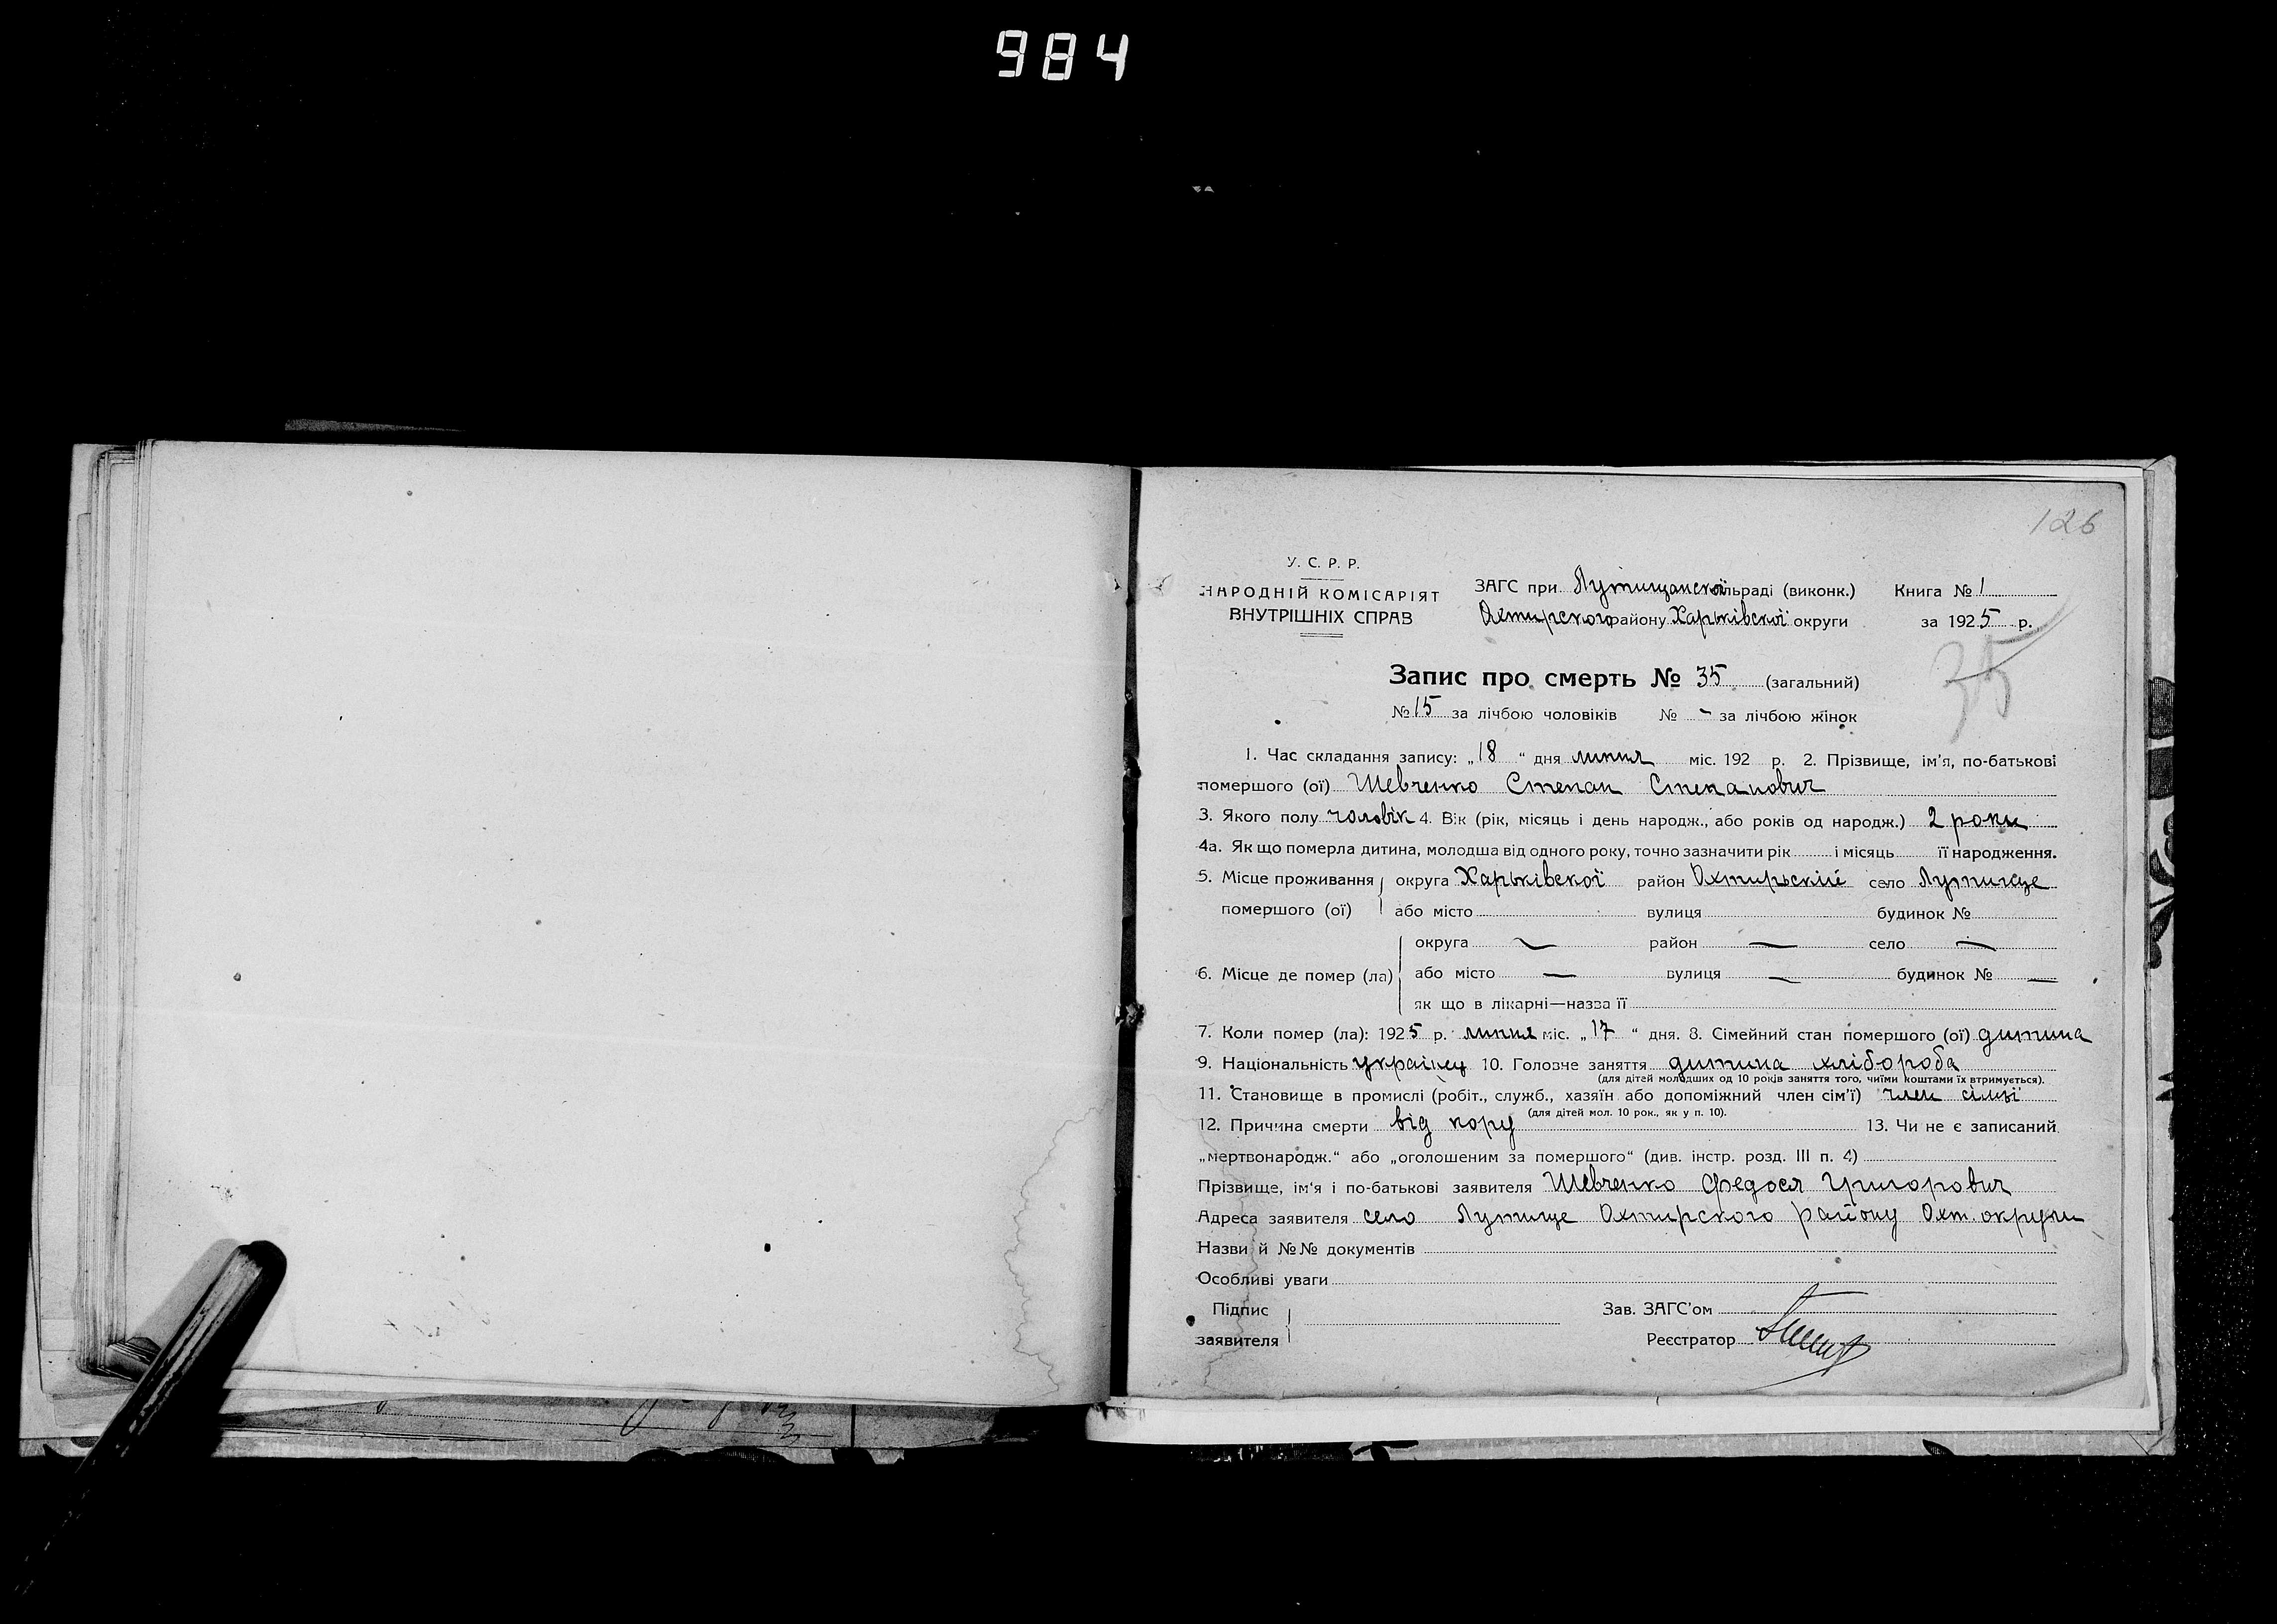 984
126
У. С. Р. Р.
НАРОДНІЙ КОМІСАРІЯТ
ВНУТРІШНІХ СПРАВ
ЗАГС при Лутищанскоїльраді (виконк.)
Охтирского району Харьківскої округи
Книга № 1
за 1925 р.
35
Запис про смерть № 35 (загальний)
№ 15 за лічбою чоловіків № - за лічбою жінок
1. Час складання запису: „18“ дня липня міс. 192 р. 2. Прізвище, ім'я, по-батькові
помершого (ої) Шевченко Степан Степанович
3. Якого полу чоловік 4. Вік (рік, місяць і день народж., або років од народж.) 2 роки
4а. Як що померла дитина, молодша від одного року, точно зазначити рік і місяць її народження.
5. Місце проживання округа Харьківскої район Охтирьскій село Лутище
помершого (ої) або місто вулиця будинок №
округа — район — село —
6. Місце де помер (ла) або місто — вулиця — будинок № —
як що в лікарні—назва її
7. Коли помер (ла): 1925 р. липня міс. „17“ дня. 8. Сімейний стан помершого (ої) дитина
9. Національність українец 10. Головне заняття дитина хлібороба
(для дітей молодших од 10 років заняття того, чиїми коштами їх втримується).
11. Становище в промислі (робіт., служб., хазяїн або допоміжний член сім'ї) член сімьі
(для дітей мол. 10 рок., як у п. 10).
12. Причина смерти від кору 13. Чи не є записаний
„мертвонародж.“ або „оголошеним за помершого“ (див. інстр. розд. III п. 4)
Прізвище, ім'я і по-батькові заявителя Шевченко Федося Григорович
Адреса заявителя село Лутище Охтирского району Охт. округи
Назви й №№ документів
Особливі уваги
Підпис
заявителя
Зав. ЗАГС'ом
Реєстратор